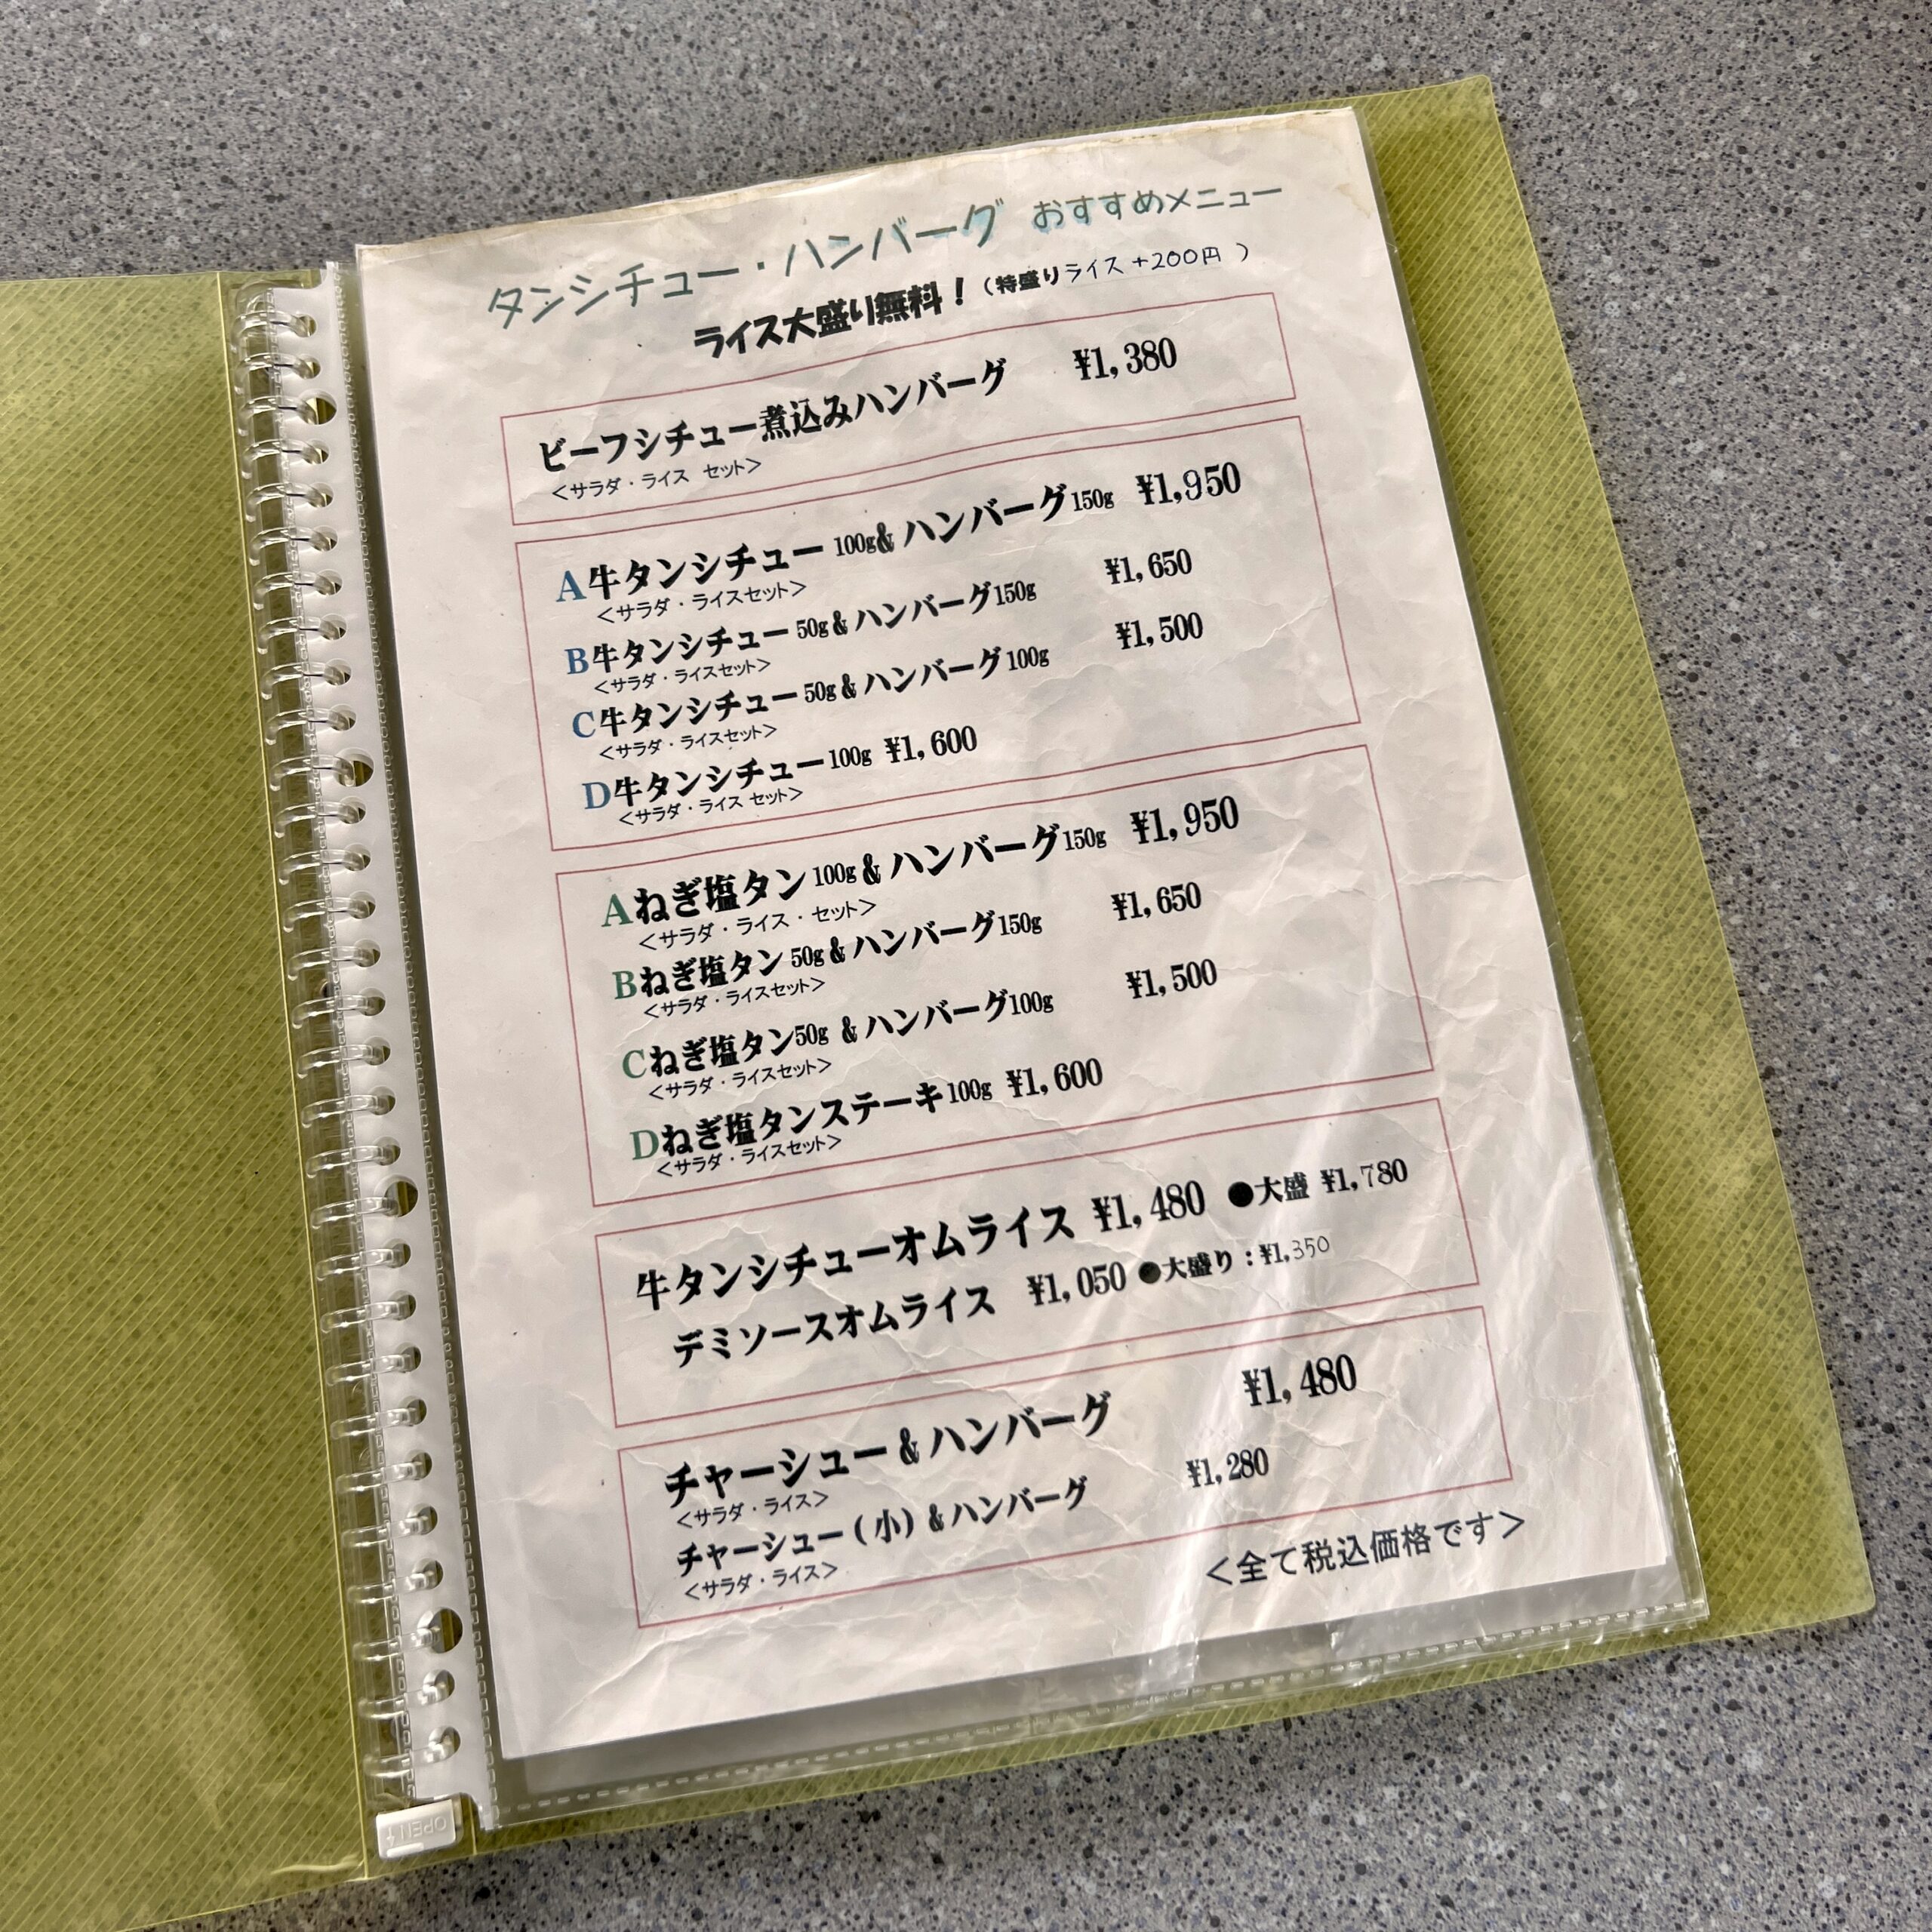 タンシチュー・ハンバーグ おすすめメニュー
ライス大盛り無料！（特盛りライス+200円 ）
ビーフシチュー煮込みハンバーグ ¥1,380
＜サラダ・ライス セット＞
A牛タンシチュー 100g& ハンバーグ150g ¥1,950
＜サラダ・ライスセット＞
B牛タンシチュー 50g & ハンバーグ150g ¥1,650
＜サラダ・ライスセット＞
C牛タンシチュー 50g & ハンバーグ100g ¥1,500
＜サラダ・ライスセット＞
D牛タンシチュー100g ¥1,600
＜サラダ・ライス セット＞
Aねぎ塩タン 100g & ハンバーグ150g ¥1,950
＜サラダ・ライス・セット＞
Bねぎ塩タン 50g & ハンバーグ150g ¥1,650
＜サラダ・ライスセット＞
Cねぎ塩タン50g & ハンバーグ100g ¥1,500
＜サラダ・ライスセット＞
Dねぎ塩タンステーキ100g ¥1,600
＜サラダ・ライスセット＞
牛タンシチューオムライス ¥1,480 ●大盛 ¥1,780
デミソースオムライス ¥1,050 ●大盛り：¥1,350
チャーシュー & ハンバーグ ¥1,480
＜サラダ・ライス＞
チャーシュー（小）& ハンバーグ ¥1,280
＜サラダ・ライス＞
＜全て税込価格です＞
OPEN